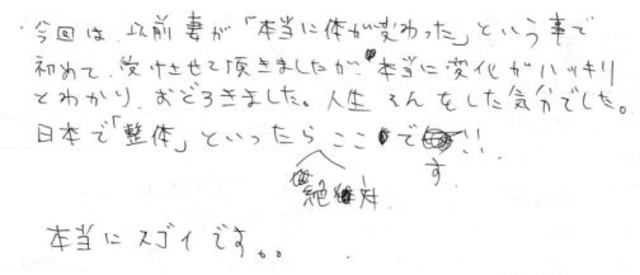 今回は、以前妻が「本当に体が変わった」という事で
初めて、受けさせて頂きましたが、本当に変化がハッキリ
とわかり、おどろきました。人生そんをした気分でした。
日本で「整体」といったらここで!!
絶対 す
本当にスゴイです。。